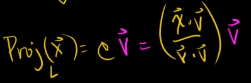 Proj_L(x⃗) = c v⃗ = (x⃗·v⃗ / v⃗·v⃗) v⃗